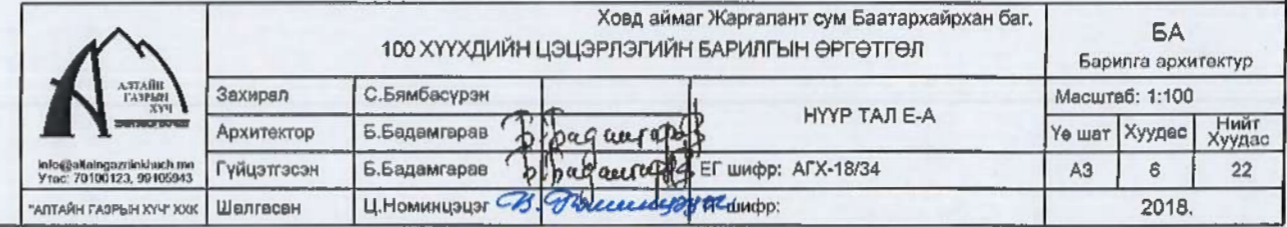 АЛТАЙН
ГАЗРЫН
ХҮЧ
info@altaingazriinkhuch.mn
Утас: 70100123, 99105943
"АЛТАЙН ГАЗРЫН ХҮЧ" ХХК
Ховд аймаг Жаргалант сум Баатархайрхан баг.
100 ХҮҮХДИЙН ЦЭЦЭРЛЭГИЙН БАРИЛГЫН ӨРГӨТГӨЛ
Захирал С.Бямбасүрэн
Архитектор Б.Бадамгарав
Гүйцэтгэсэн Б.Бадамгарав
Шалгасан Ц.Номинцэцэг
НҮҮР ТАЛ Е-А
ЕГ шифр: АГХ-18/34
шифр:
БА
Барилга архитектур
Масштаб: 1:100
Үе шат Хуудас Нийт Хуудас
А3 6 22
2018.